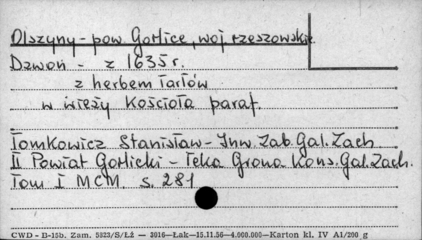 Olszyny - pow Gorlice, woj rzeszowskie
Dzwon - z 1635 r.
z herbem Tarłów
w wieży Kościoła paraf.
Tomkowicz Stanisław - Inw. Zab. Gal. Zach
II Powiat Gorlicki - Teka Grona Kons. Gal. Zach.
Tom I MCM. s. 281
CWD - D-15b. Zam. 5323/S/Łż — 3016—Łak—15.11.56—4.000.000—Karton kl. IV A1/200 g